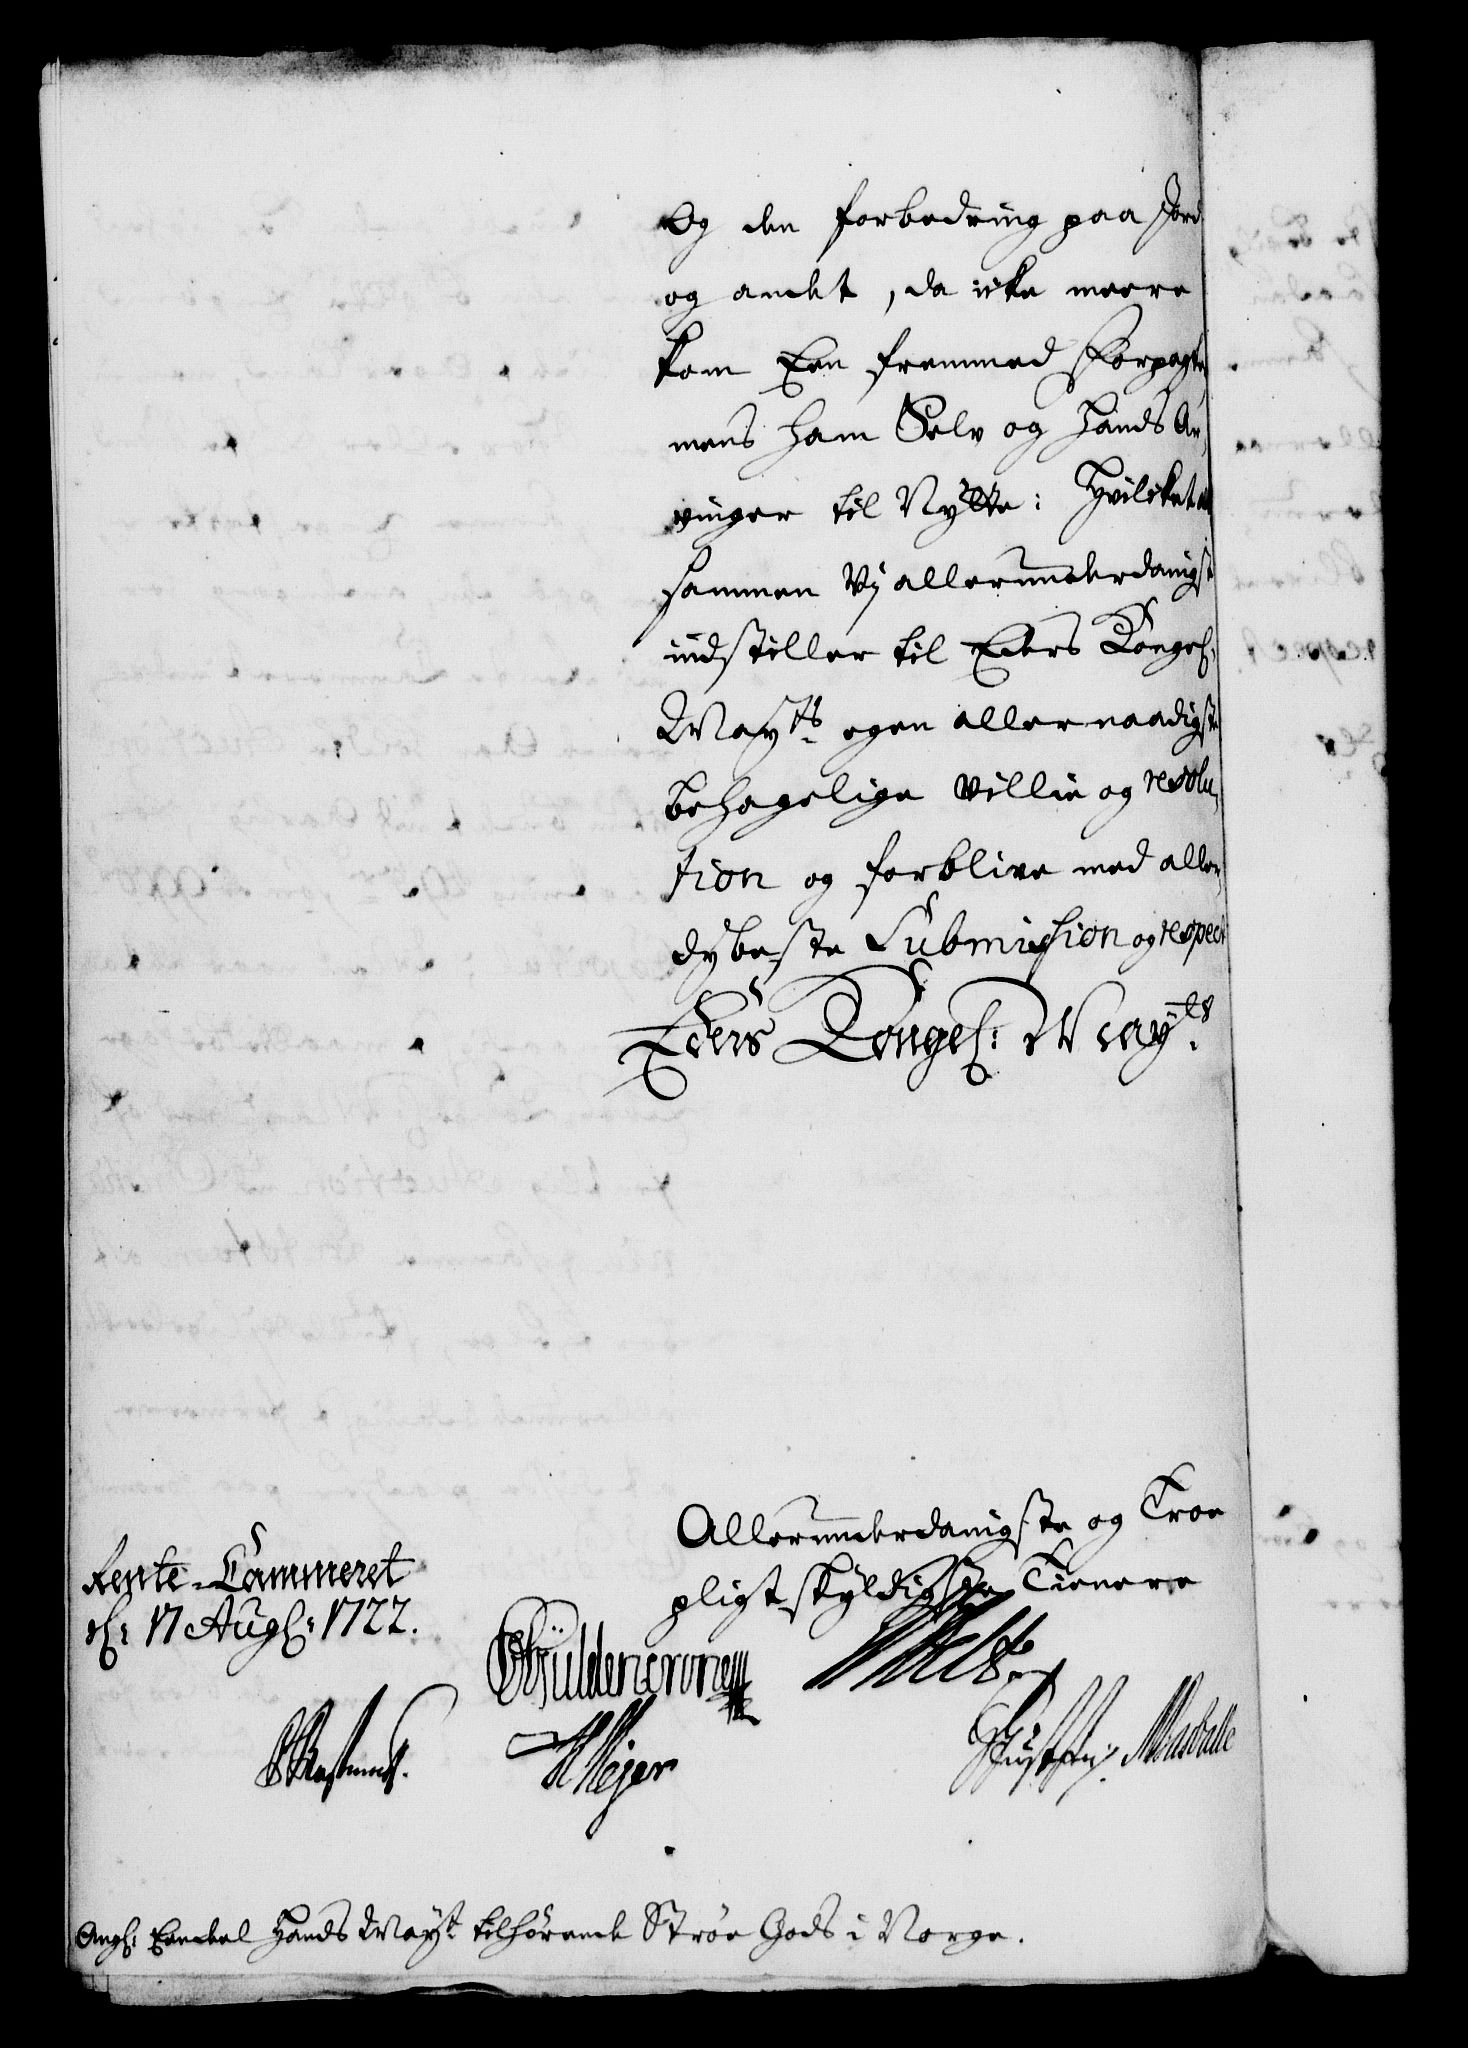 Og den forbedring paa Jord
og andet, da icke meere
kom Een fremmed Forpagter
mens ham Selv og Hands Ar,
vinger til Nytte: Hvilcket
sammen Vj allerunderdanigst
indstiller til Eders Kongel:
Mayts egen allernaadigste
behagelige Villie og resolu,
tion og forblive med aller,
dybeste Submission og respect
Eders Kongel: Mayts
Allerunderdanigste og Troe
pligtskyldigste Tienere
Rente-Cammeret
d: 17 Aug: 1722.
Güldencrone
Meyer
Ang: Eendeel Hands Mayt tilhørende Strøe Gods i Norge.